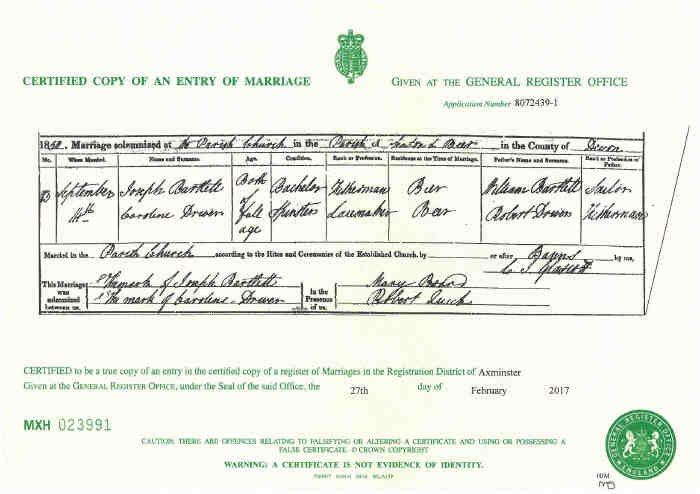 CERTIFIED COPY OF AN ENTRY OF MARRIAGE
GIVEN AT THE GENERAL REGISTER OFFICE
Application Number 8072439-1
Marriage solemnized at the Parish Church in the Parish of Seaton & Beer in the County of Devon
No. When Married. Name and Surname. Age. Condition. Rank or Profession. Residence at the Time of Marriage. Father's Name and Surname. Rank or Profession of Father.
September Joseph Bartlett Both Bachelor Fisherman Beer William Bartlett Sailor
of
14th Caroline Driver full Spinster Lacemaker Beer Robert Driver Fisherman
age
Married in the Parish Church according to the Rites and Ceremonies of the Established Church, by or after Banns by me,
This Marriage was solemnized between us, The mark of Joseph Bartlett
The mark of Caroline Driver
In the Presence of us. Mary Board
Robert
CERTIFIED to be a true copy of an entry in the certified copy of a register of Marriages in the Registration District of Axminster
Given at the GENERAL REGISTER OFFICE, under the Seal of the said Office, the 27th day of February 2017
MXH 023991
CAUTION: THERE ARE OFFENCES RELATING TO FALSIFYING OR ALTERING A CERTIFICATE AND USING OR POSSESSING A
FALSE CERTIFICATE. © CROWN COPYRIGHT
WARNING: A CERTIFICATE IS NOT EVIDENCE OF IDENTITY.
GENERAL REGISTER OFFICE
ENGLAND